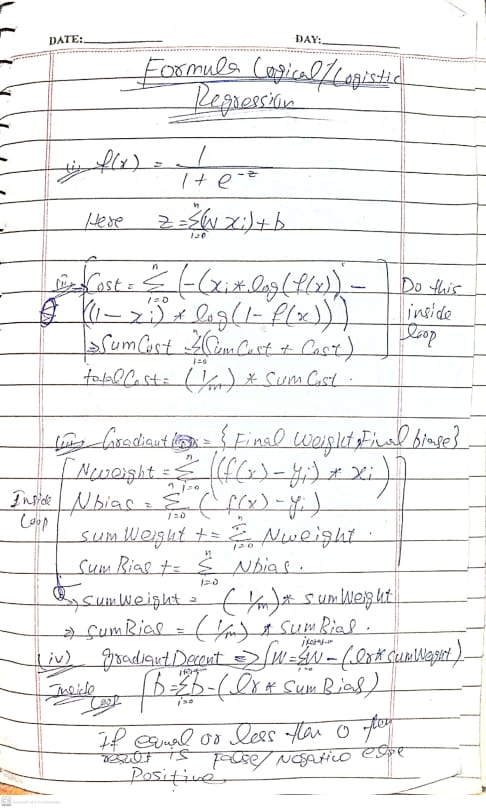 DATE: DAY:
Formula Logical/Logistic
Regression
(i) f(x) = 1 / 1 + e^-z
Here z = n Σ i=0 (w xi) + b
(ii) Cost = n Σ i=0 (-(xi * log(f(x)) -
((1 - xi) * log(1 - f(x)))
⇒ SumCost = n Σ i=0 (SumCost + Cost)
Do this
inside
loop
total Cost = (1/m) * SumCost.
(iii) Gradiant = { Final Weight, Final biase}
Inside
Loop
Nweight = n Σ i=0 ((f(x) - yi) * xi)
Nbias = n Σ i=0 (f(x) - yi)
sum Weight += n Σ i=0 Nweight.
Sum Bias += n Σ i=0 Nbias.
⇒ sumWeight = (1/m) * sumWeight
⇒ sumBias = (1/m) * SumBias.
(iv) gradiant Decent ⇒ W = Σ W - (lr * sumWeight)
Inside
Loop
b = Σ i=0 b - (lr * Sum Bias)
If equal or less than 0 then
result is false/Negative else
Positive